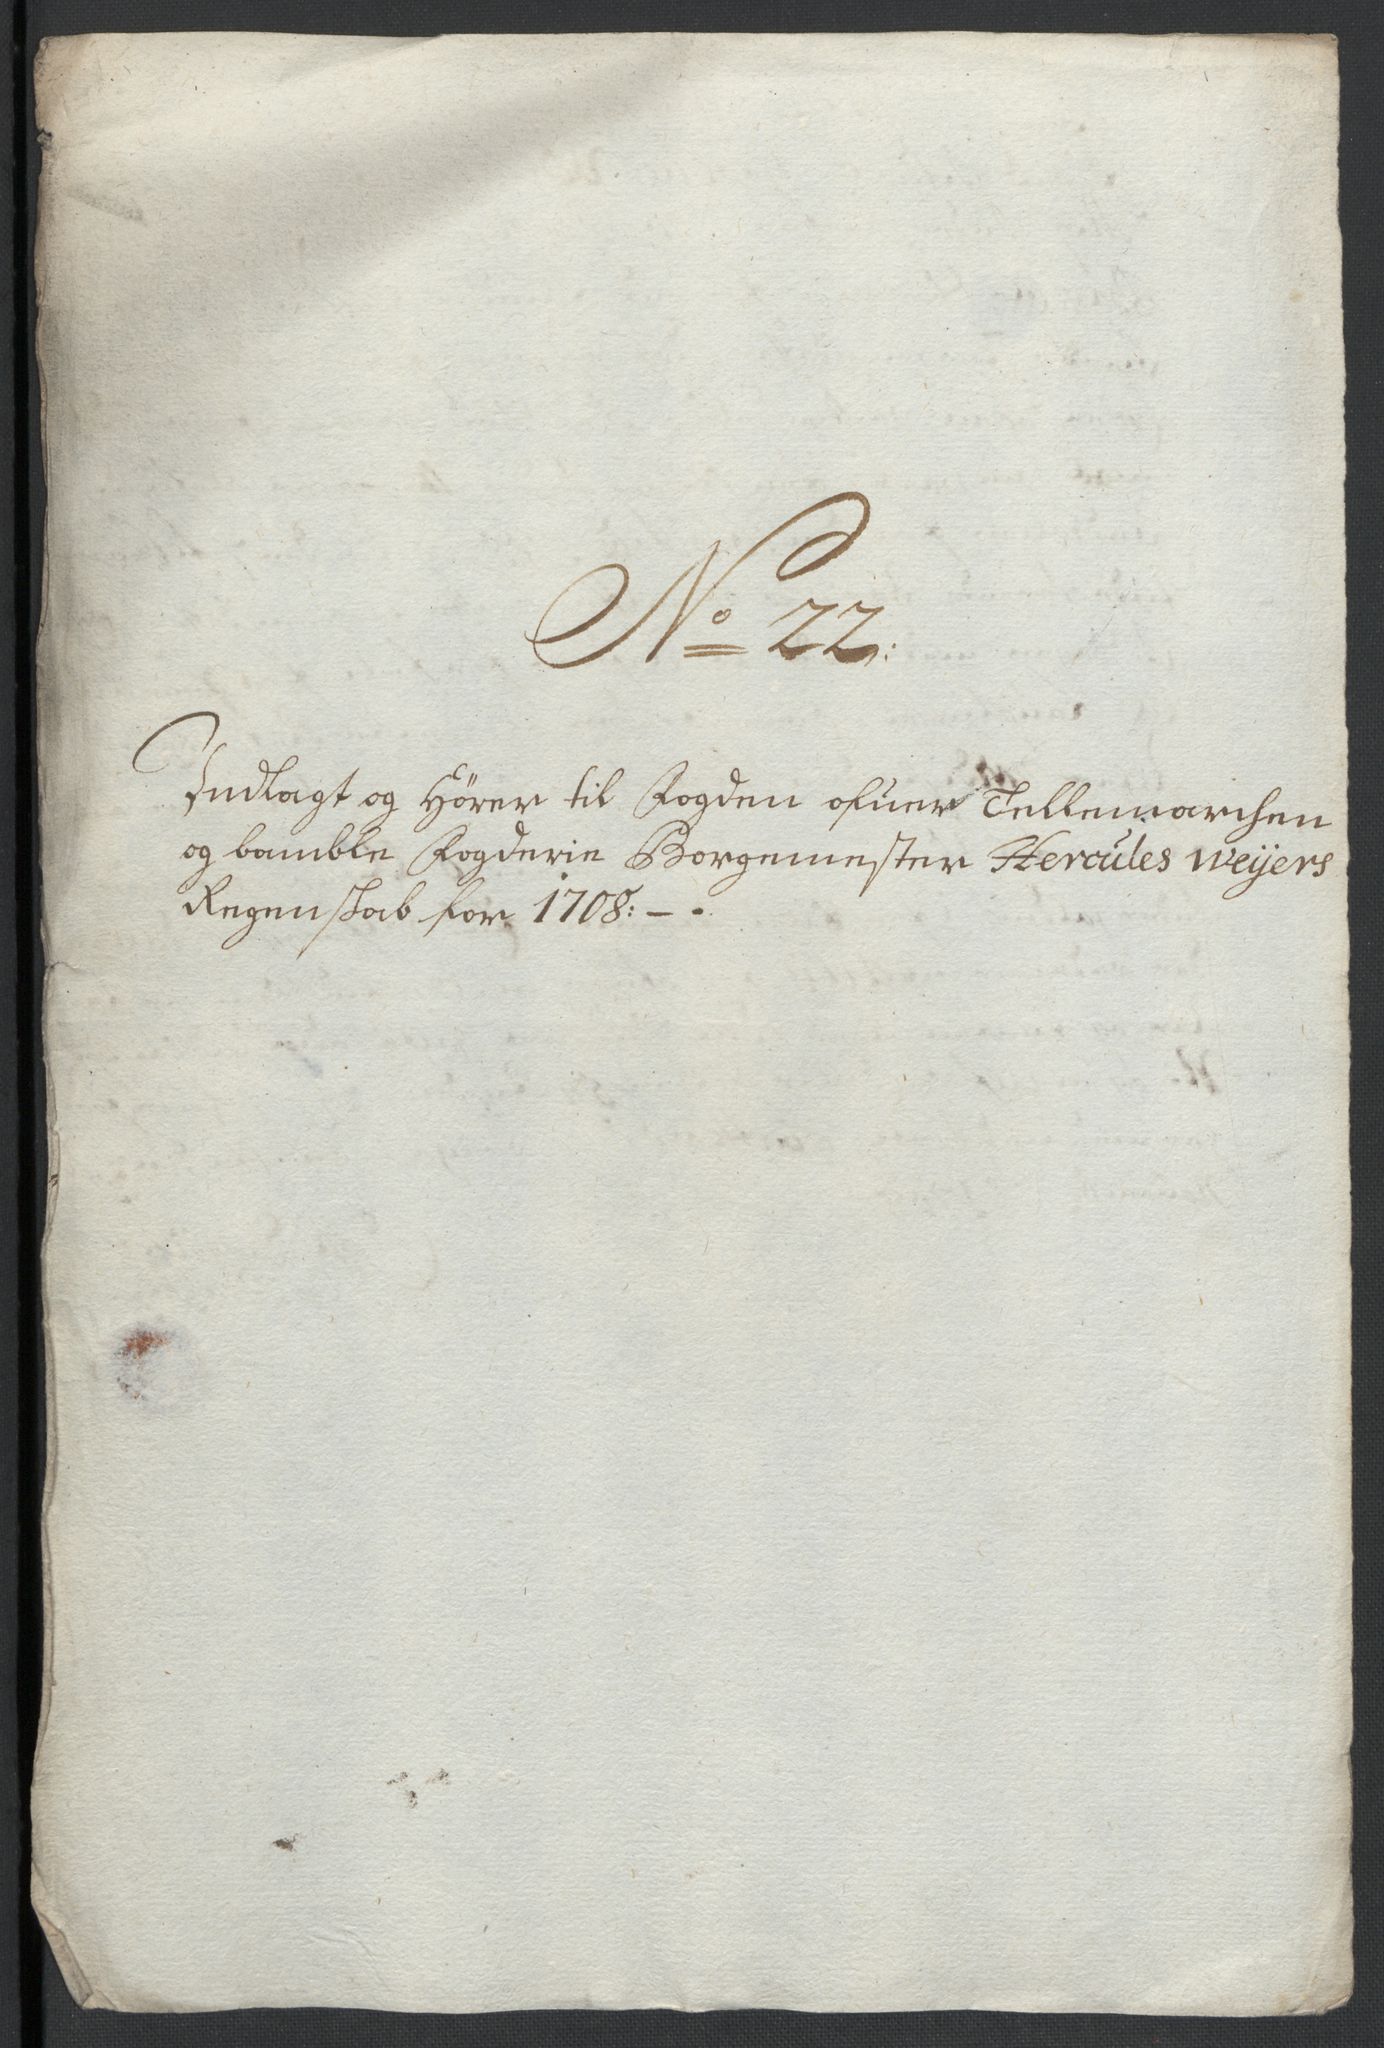 No 22:
Indlagt og Hörer til Fogden ofuer Tellemarchen
og bamble Fogderie Borgemester Hercules weÿers
Regenskab for 1708: -